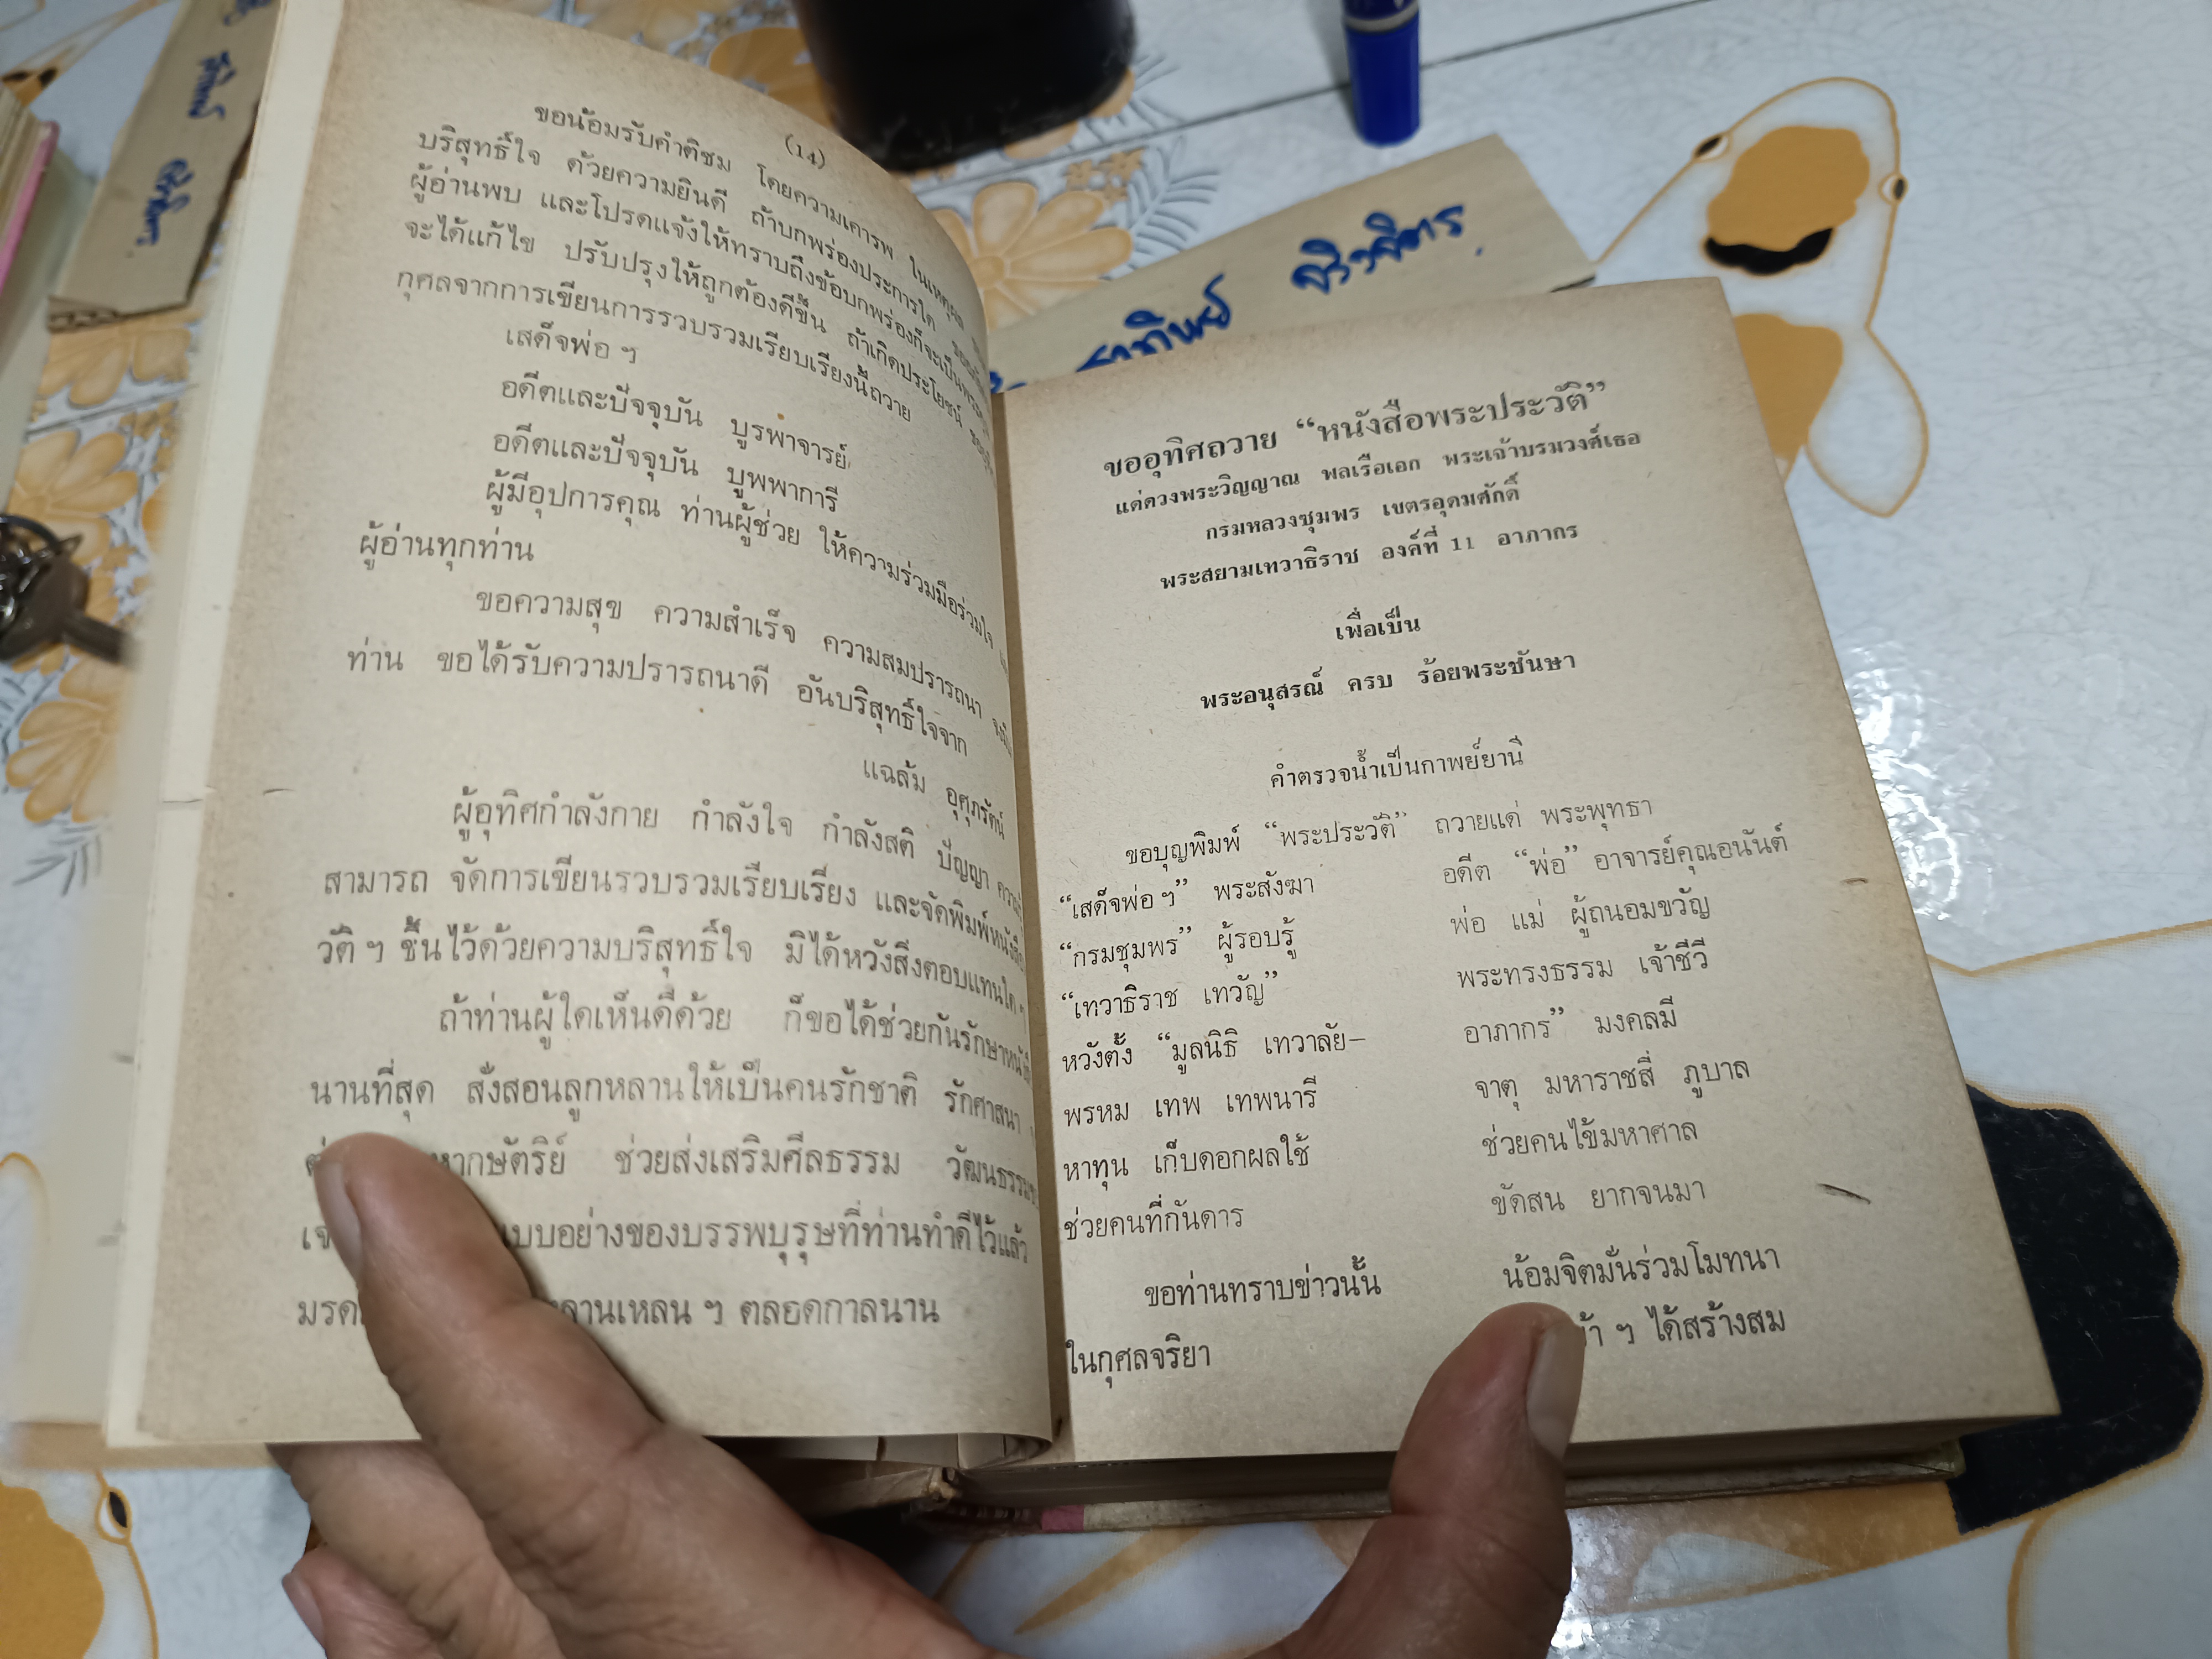 (14)
ขอน้อมรับคำติชม โดยความเคารพ ในเหตุผล
บริสุทธิ์ใจ ด้วยความยินดี ถ้าบกพร่องประการใด
ผู้อ่านพบ และโปรดแจ้งให้ทราบถึงข้อบกพร่องก็จะเป็น
จะได้แก้ไข ปรับปรุงให้ถูกต้องดีขึ้น ถ้าเกิดประโยชน์
กุศลจากการเขียนการรวบรวมเรียบเรียงนี้ถวาย
เสด็จพ่อ ฯ
อดีตและปัจจุบัน บูรพาจารย์
อดีตและปัจจุบัน บูพพาการี
ผู้มีอุปการคุณ ท่านผู้ช่วย ให้ความร่วมมือร่วมใจ
ผู้อ่านทุกท่าน
ขอความสุข ความสำเร็จ ความสมปรารถนา
ท่าน ขอได้รับความปรารถนาดี อันบริสุทธิ์ใจจาก
แฉล้ม อุศุภรัตน์
ผู้อุทิศกำลังกาย กำลังใจ กำลังสติ ปัญญา
สามารถ จัดการเขียนรวบรวมเรียบเรียง และจัดพิมพ์หนังสือ
วัติ ฯ ขึ้นไว้ด้วยความบริสุทธิ์ใจ มิได้หวังสิ่งตอบแทนใด ๆ
ถ้าท่านผู้ใดเห็นดีด้วย ก็ขอได้ช่วยกันรักษา
นานที่สุด สั่งสอนลูกหลานให้เป็นคนรักชาติ รักศาสนา
หากษัตริย์ ช่วยส่งเสริมศีลธรรม
แบบอย่างของบรรพบุรุษที่ท่านทำดีไว้แล้ว
ลานเหลน ฯ ตลอดกาลนาน
ขออุทิศถวาย “หนังสือพระประวัติ”
แด่ดวงพระวิญญาณ พลเรือเอก พระเจ้าบรมวงศ์เธอ
กรมหลวงชุมพร เขตรอุดมศักดิ์
พระสยามเทวาธิราช องค์ที่ 11 อาภากร
เพื่อเป็น
พระอนุสรณ์ ครบ ร้อยพระชันษา
คำตรวจน้ำเป็นกาพย์ยานี
ขอบุญพิมพ์ “พระประวัติ” ถวายแด่ พระพุทธา
“เสด็จพ่อ ฯ” พระสังฆา อดีต “พ่อ” อาจารย์คุณอนันต์
“กรมชุมพร” ผู้รอบรู้ พ่อ แม่ ผู้ถนอมขวัญ
“เทวาธิราช เทวัญ” พระทรงธรรม เจ้าชีวี
หวังตั้ง “มูลนิธิ เทวาลัย– อาภากร” มงคลมี
พรหม เทพ เทพนารี จาตุ มหาราชสี่ ภูบาล
หาทุน เก็บดอกผลใช้ ช่วยคนไข้มหาศาล
ช่วยคนที่กันดาร ขัดสน ยากจนมา
ขอท่านทราบข่าวนั้น น้อมจิตมั่นร่วมโมทนา
ในกุศลจริยา ฯ ได้สร้างสม